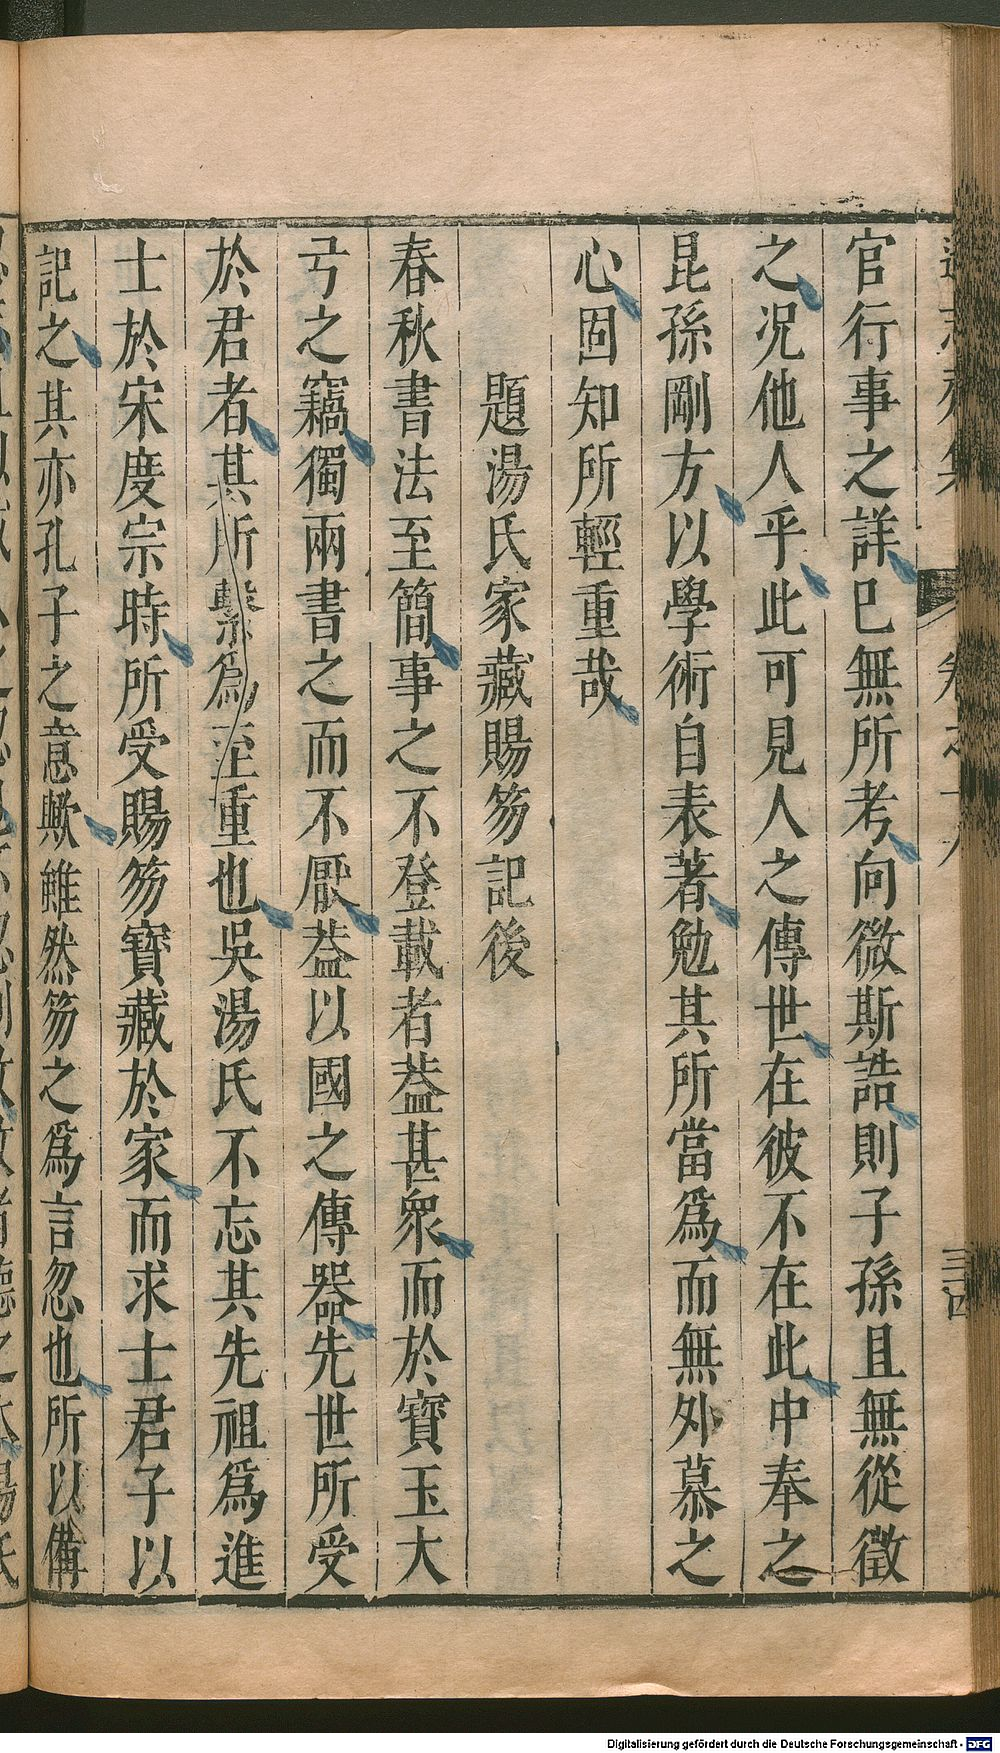 官行事之詳已無所考向微斯誥則子孫且無從徵
之况他人乎此可見人之傳世在彼不在此中奉之
昆孫剛方以學術自表著勉其所當爲而無外慕之
心固知所輕重哉
題湯氏家藏賜笏記後
春秋書法至簡事之不登載者葢甚衆而於寶玉大
弓之竊獨兩書之而不厭葢以國之傳器先世所受
於君者其所繫爲至重也吳湯氏不忘其先祖爲進
士於宋度宗時所受賜笏寶藏於家而求士君子以
記之其亦孔子之意歟雖然笏之爲言忽也所以備
Digitalisierung gefördert durch die Deutsche Forschungsgemeinschaft - DFG